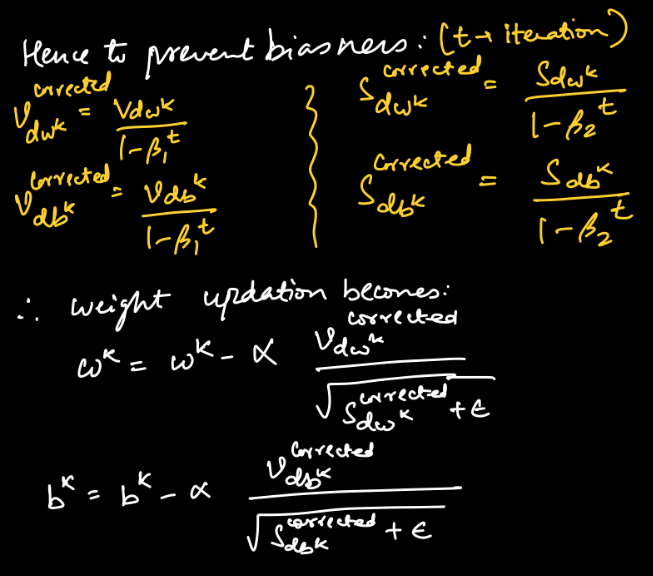 Hence to prevent biasness: (t → iteration)
V_{dw^k}^{corrected} = \frac{V_{dw^k}}{1-β_1^t}    S_{dw^k}^{corrected} = \frac{S_{dw^k}}{1-β_2^t}
V_{db^k}^{corrected} = \frac{V_{db^k}}{1-β_1^t}    S_{db^k}^{corrected} = \frac{S_{db^k}}{1-β_2^t}
∴ weight updation becomes:
w^k = w^k - α \frac{V_{dw^k}^{corrected}}{\sqrt{S_{dw^k}^{corrected} + ε}}
b^k = b^k - α \frac{V_{db^k}^{corrected}}{\sqrt{S_{db^k}^{corrected} + ε}}